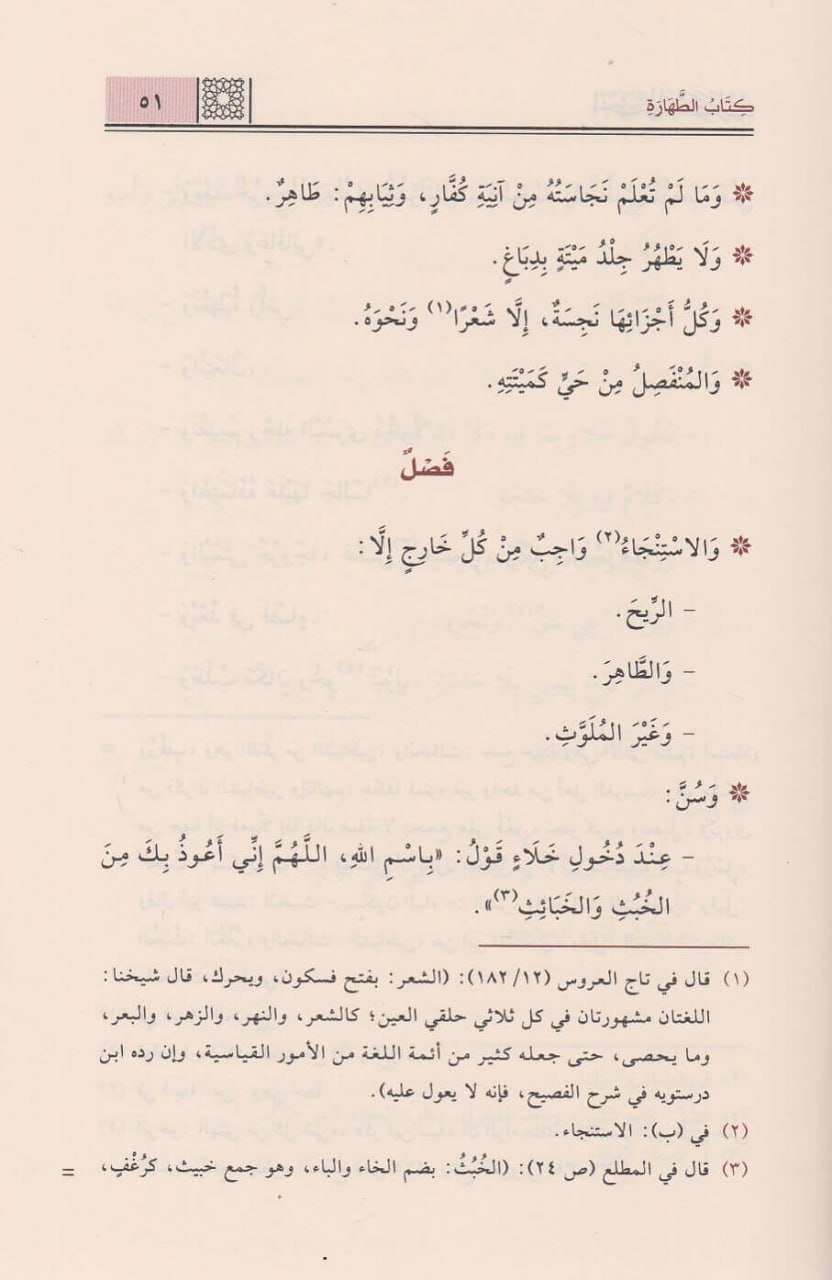 كِتَابُ الطَّهَارَةِ
٥١
وَمَا لَمْ تُعْلَمْ نَجَاسَتُهُ مِنْ آنِيَةِ كُفَّارٍ، وَثِيَابِهِمْ: طَاهِرٌ.
وَلَا يَطْهُرُ جِلْدُ مَيْتَةٍ بِدِبَاغٍ.
وَكُلُّ أَجْزَائِهَا نَجِسَةٌ، إِلَّا شَعْرًا(١) وَنَحْوَهُ.
وَالمُنْفَصِلُ مِنْ حَيٍّ كَمَيْتَتِهِ.
فَصْلٌ
وَالاسْتِنْجَاءُ(٢) وَاجِبٌ مِنْ كُلِّ خَارِجٍ إِلَّا:
- الرِّيحَ.
- وَالطَّاهِرَ.
- وَغَيْرَ المُلَوِّثِ.
وَسُنَّ:
- عِنْدَ دُخُولِ خَلَاءٍ قَوْلُ: «بِاسْمِ اللهِ، اللَّهُمَّ إِنِّي أَعُوذُ بِكَ مِنَ
الخُبُثِ وَالخَبَائِثِ(٣)».
(١) قال في تاج العروس (١٢/ ١٨٢): (الشعر: بفتح فسكون، ويحرك، قال شيخنا:
اللغتان مشهورتان في كل ثلاثي حلقي العين؛ كالشعر، والنهر، والزهر، والبعر،
وما يحصى، حتى جعله كثير من أئمة اللغة من الأمور القياسية، وإن رده ابن
درستويه في شرح الفصيح، فإنه لا يعول عليه).
(٢) في (ب): الاستنجاء.
(٣) قال في المطلع (ص ٢٤): (الخُبُثُ: بضم الخاء والباء، وهو جمع خبيث، كرُغْفٍ، =